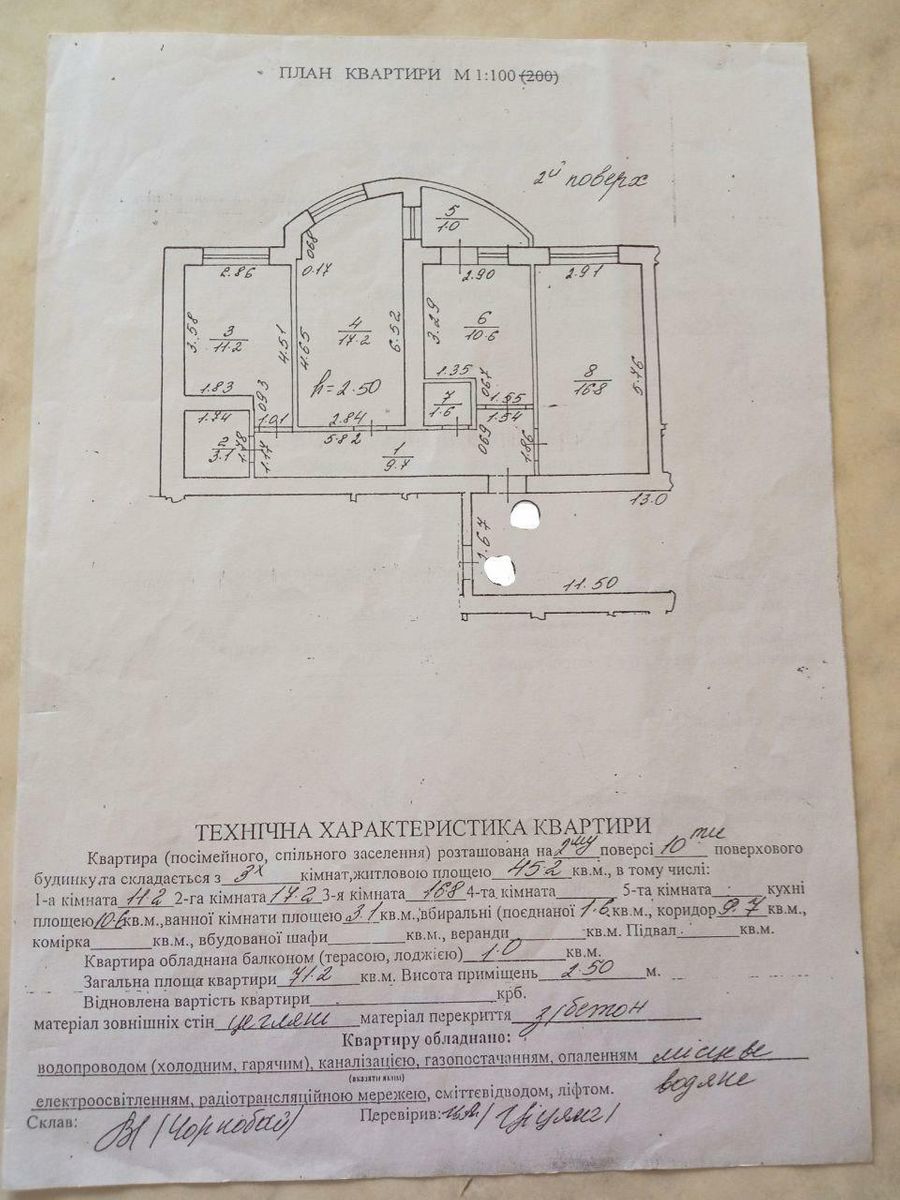 ПЛАН КВАРТИРИ М 1:100 (200)
2й поверх
5
1.0
0.68
2.86
0.17
2.90
2.91
3.58
3
11.2
4.51
4.65
4
17.2
6.52
3.29
6
10.6
8
16.8
5.76
1.83
0.93
h=2.50
1.35
0.67
7
1.6
1.55
1.74
1.01
2.84
1.54
2
3.1
1.78
1.17
5.82
1
9.7
0.69
1.86
13.0
1.67
11.50
ТЕХНІЧНА ХАРАКТЕРИСТИКА КВАРТИРИ
Квартира (посімейного, спільного заселення) розташована на 2му поверсі 10ти поверхового
будинку,та складається з 3х кімнат,житловою площею 45.2 кв.м., в тому числі:
1-а кімната 11.2 2-га кімната 17.2 3-я кімната 16.8 4-та кімната 5-та кімната кухні
площею 10.6 кв.м.,ванної кімнати площею 3.1 кв.м.,вбиральні (поєднаної 1.6 кв.м., коридор 9.7 кв.м.,
комірка кв.м., вбудованої шафи кв.м., веранди кв.м. Підвал кв.м.
Квартира обладнана балконом (терасою, лоджією) 1.0 кв.м.
Загальна площа квартири 71.2 кв.м. Висота приміщень 2.50 м.
Відновлена вартість квартири крб.
матеріал зовнішніх стін цегляні матеріал перекриття з/бетон
Квартиру обладнано:
водопроводом (холодним, гарячим), каналізацією, газопостачанням, опаленням місцеве
(вказати яким)
водяне
електроосвітленням, радіотрансляційною мережею, сміттєвідводом, ліфтом.
Склав: /Чорнобай/ Перевірив: